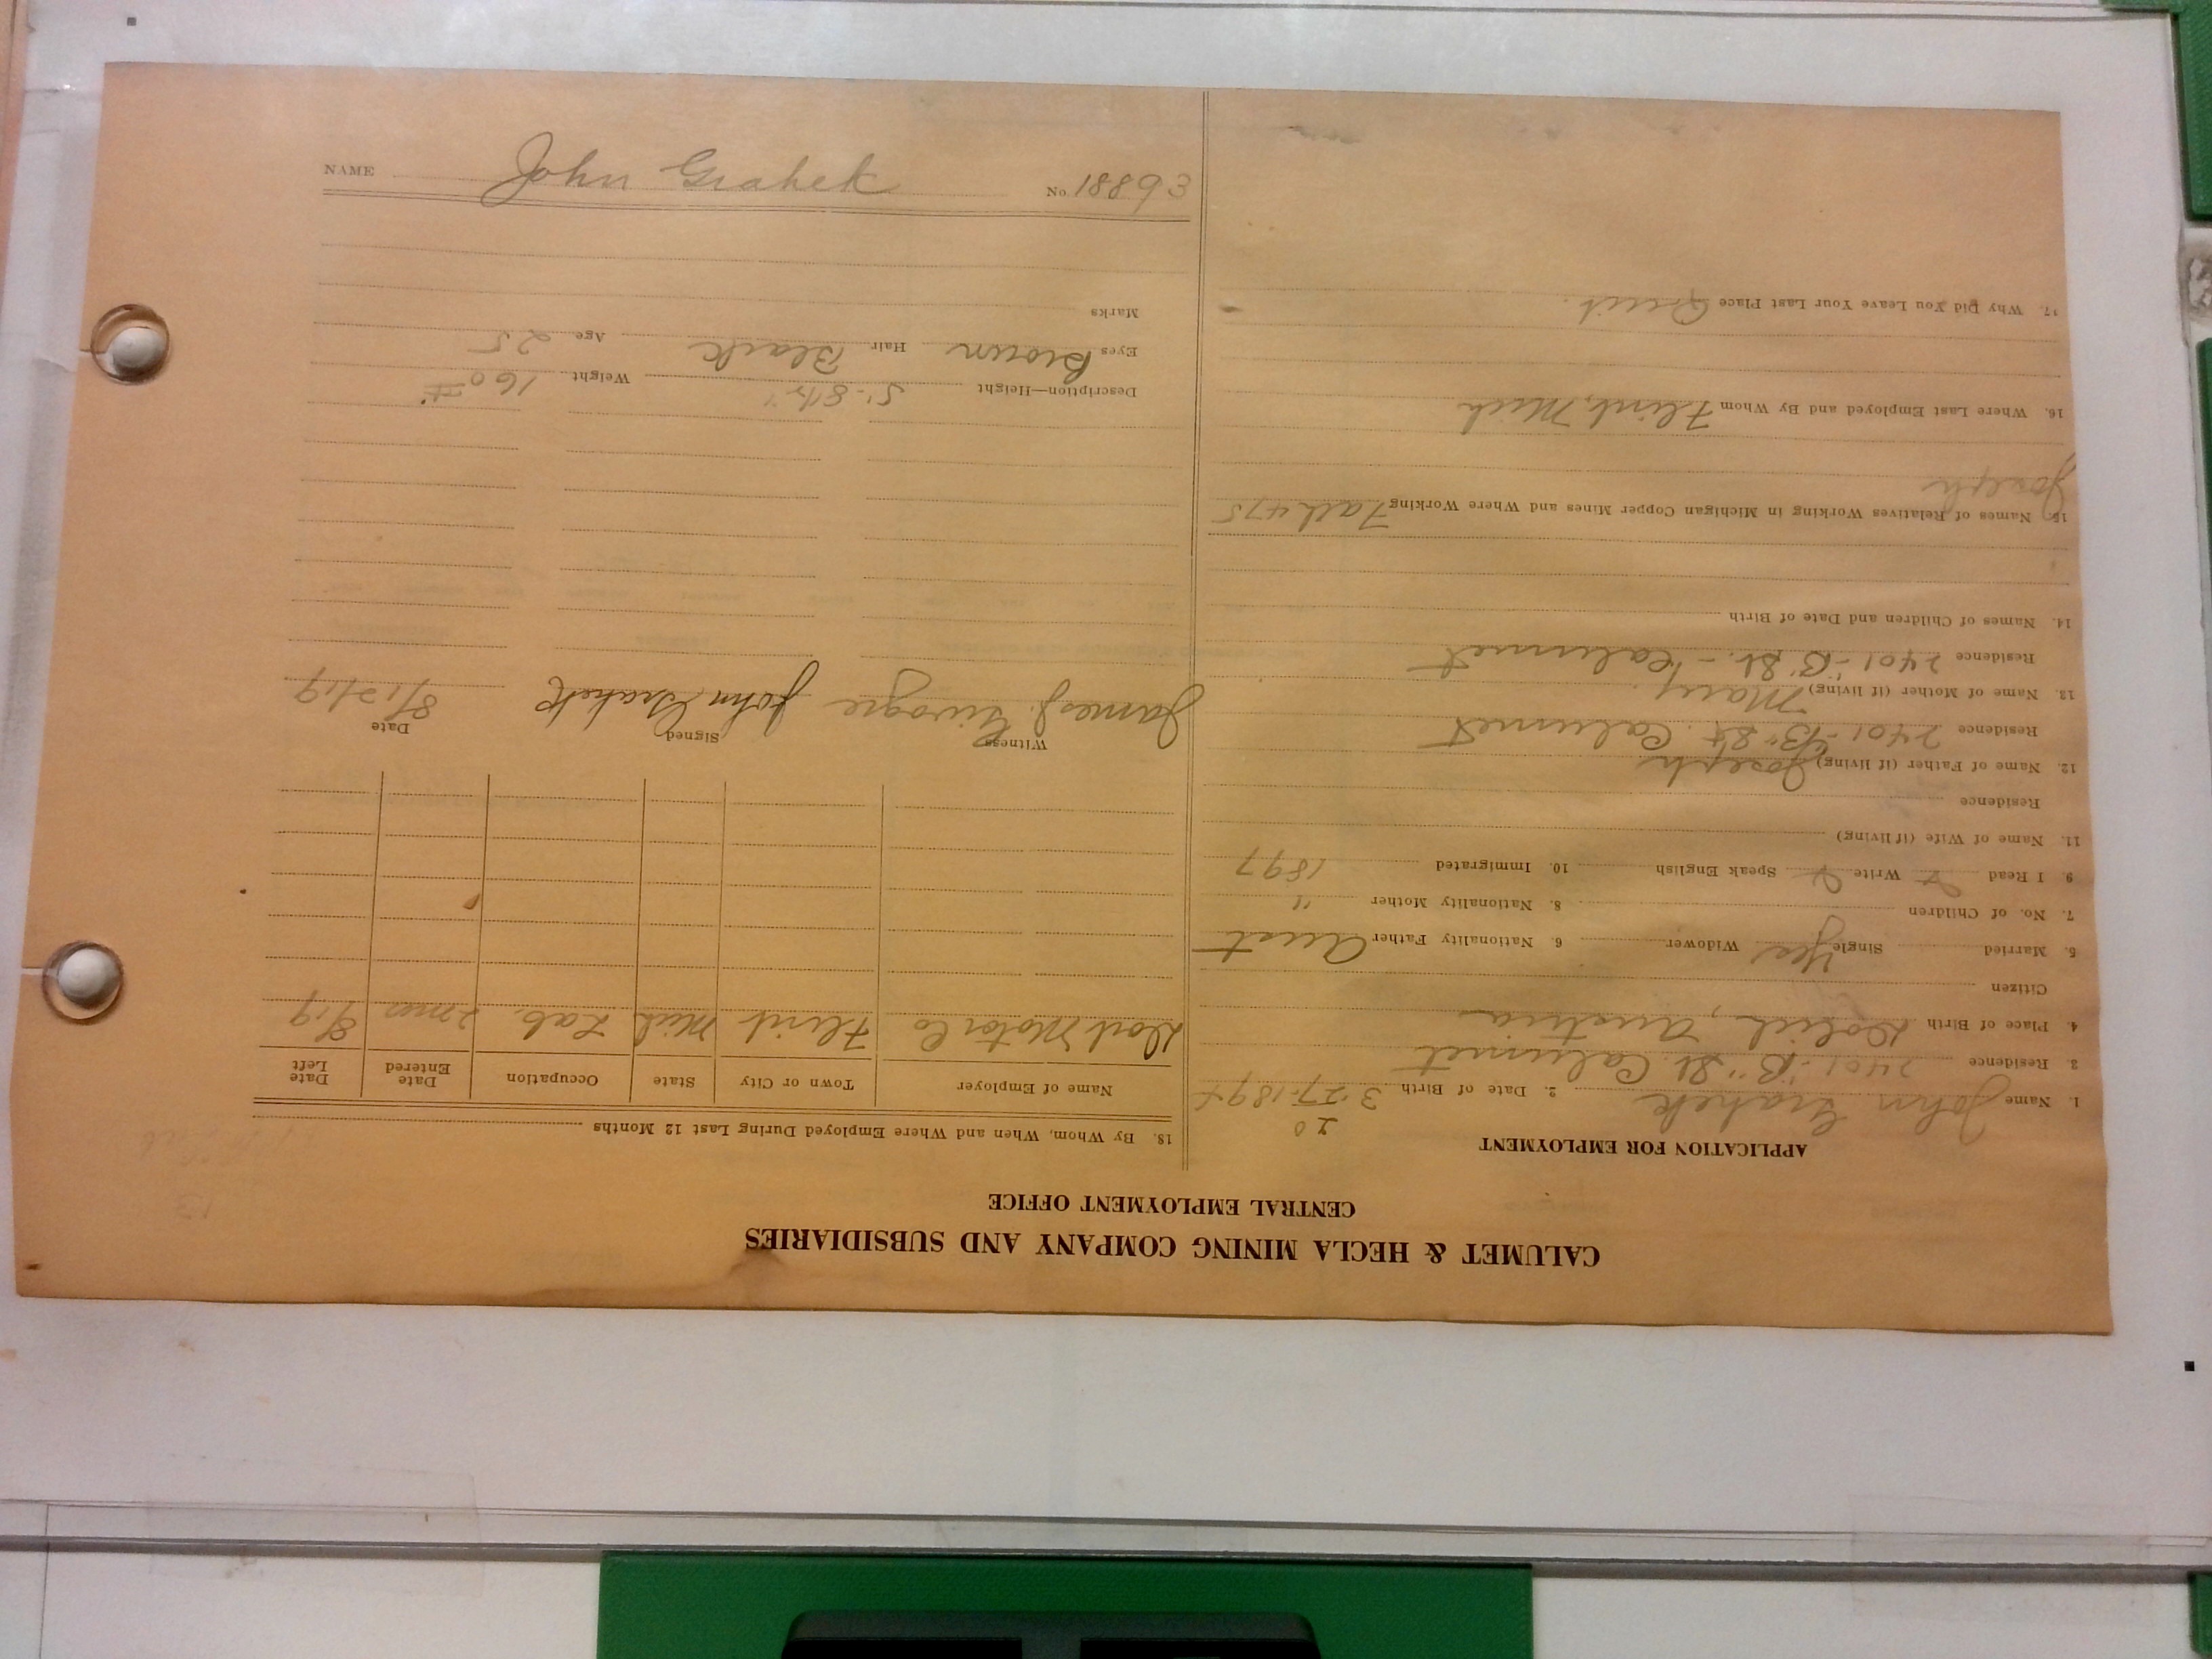 CALUMET & HECLA MINING COMPANY AND SUBSIDIARIES
CENTRAL EMPLOYMENT OFFICE
APPLICATION FOR EMPLOYMENT
1. Name John Grahek 2. Date of Birth 3-27-1894
20
3. Residence 2401-"B" St. Calumet
4. Place of Birth Dolich, Austria
Citizen
5. Married Single Yes Widower 6. Nationality Father Aust
7. No. of Children 8. Nationality Mother "
9. I Read Write Speak English 10. Immigrated 1897
11. Name of Wife (if living)
Residence
12. Name of Father (if living) Joseph
Residence 2401-"B" St. Calumet
13. Name of Mother (if living) Mary
Residence 2401-"B" St. - Calumet
14. Names of Children and Date of Birth
15. Names of Relatives Working in Michigan Copper Mines and Where Working Fath 475
Joseph
16. Where Last Employed and By Whom Flint, Mich
17. Why Did You Leave Your Last Place Quit.
18. By Whom, When and Where Employed During Last 12 Months
Name of Employer Town or City State Occupation Date Entered Date Left
Dort Motor Co Flint Mich Lab. 2 mos 8/19
Witness Signed Date
James J. John Grahek 8/12/19
Description—Height 5'-8½" Weight 160 #
Eyes Brown Hair Black Age 25
Marks
NAME John Grahek No. 18893